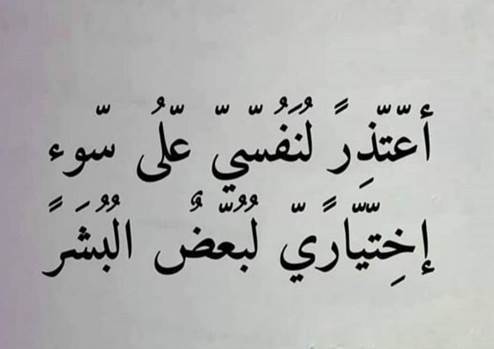 أعّتذّرِ لُنَفُسّيّ عّلُى سّوء
إخِتيّّارًيّ لُبُعّضٌ الُبُشَرً